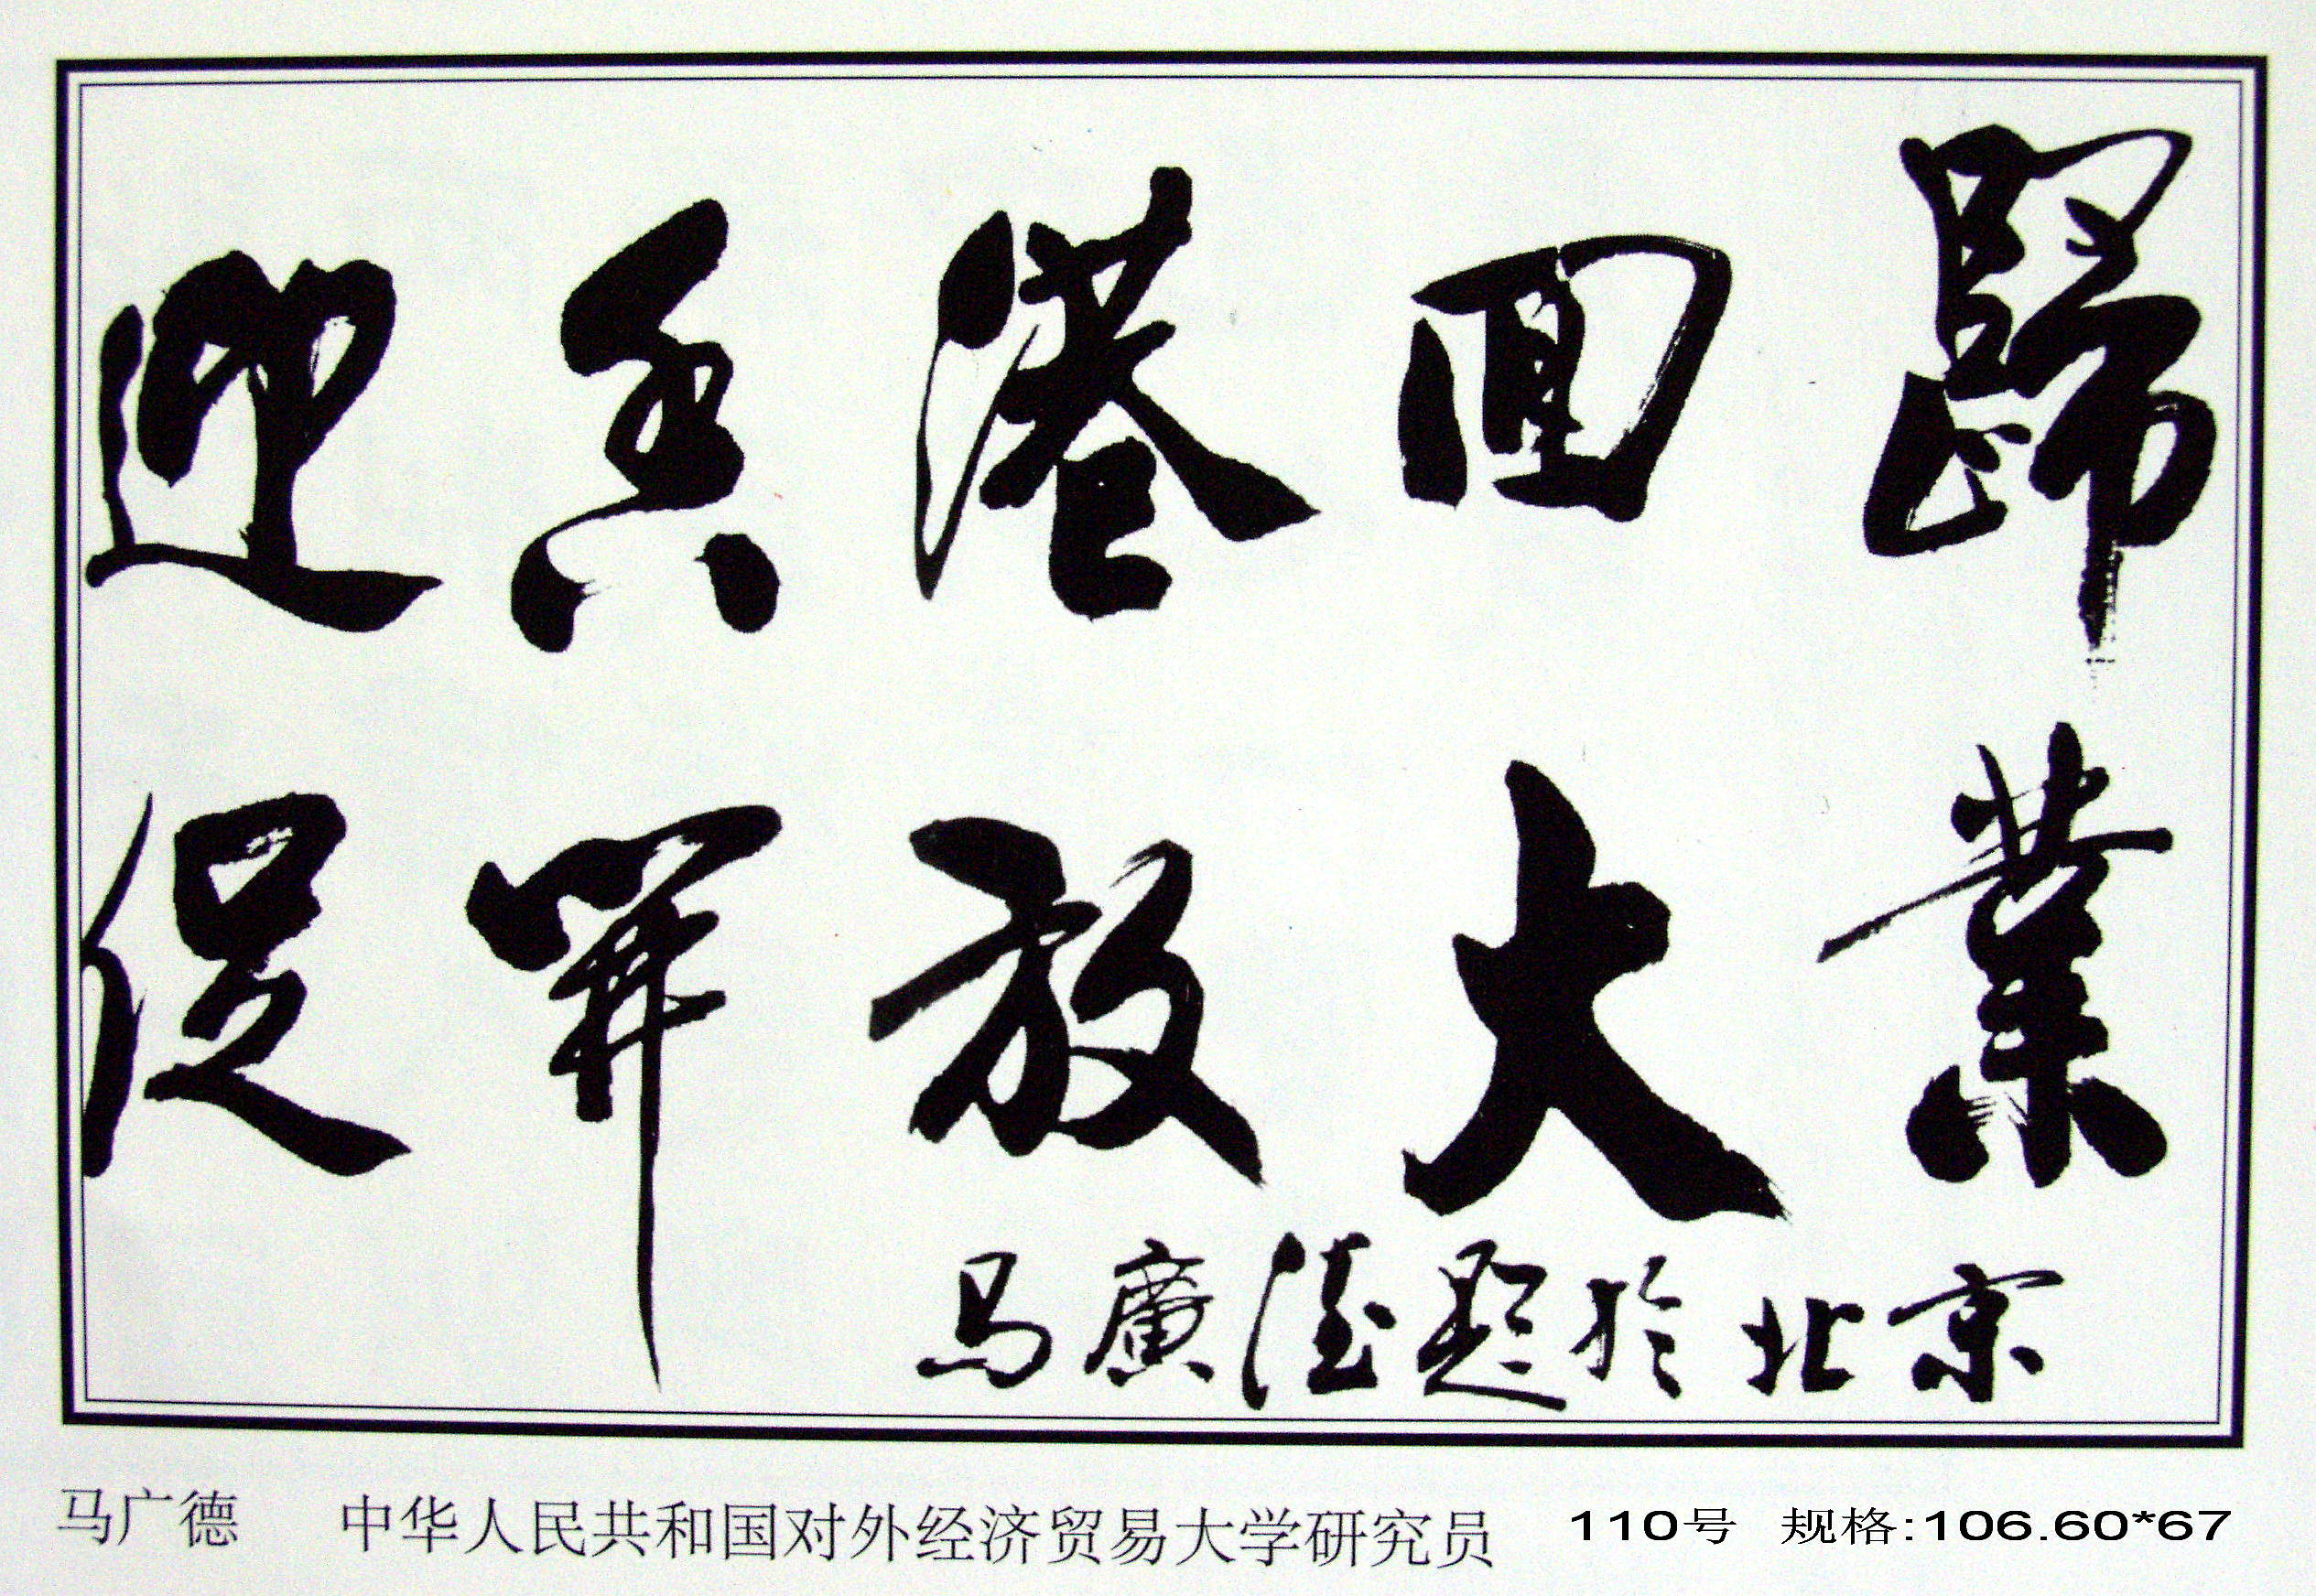 迎香港回歸
促開放大業
馬廣德題於北京
马广德 中华人民共和国对外经济贸易大学研究员 110号 规格:106.60*67